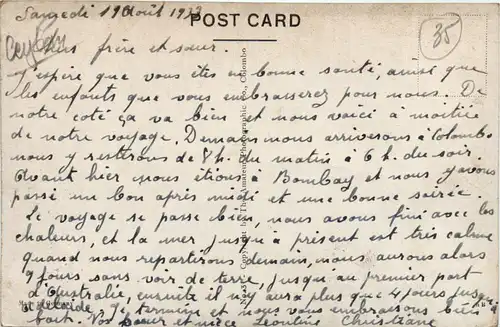 Samedi 19 Août 1933
POST CARD
35
Ceylan
Chers frère et sœur.
J'espère que vous êtes en bonne santé, ainsi que
les enfants que vous embrasserez pour nous. De
notre coté ça va bien et nous voici à moitiée
de notre voyage. Demain nous arriverons à Colombo
nous y resterons de 8 h. du matin à 6 h. du soir.
Avant hier nous étions à Bombay et nous y avons
passé un bon après midi et une bonne soirée.
Le voyage se passe bien, nous avons fini avec les
chaleurs, et la mer jusqu'à présent est très calme
quand nous repartirons demain, nous aurons alors
9 jours sans voir de terre, jusqu'au premier port
d'Australie, ensuite il n'y aura plus que 4 jours jusqu'à
Adelaïde. Je termine et nous vous embrassons bien
fort. Vos sœur et nièce Léontine Christiane
Copyright by The Amateur Photographic Co., Colombo